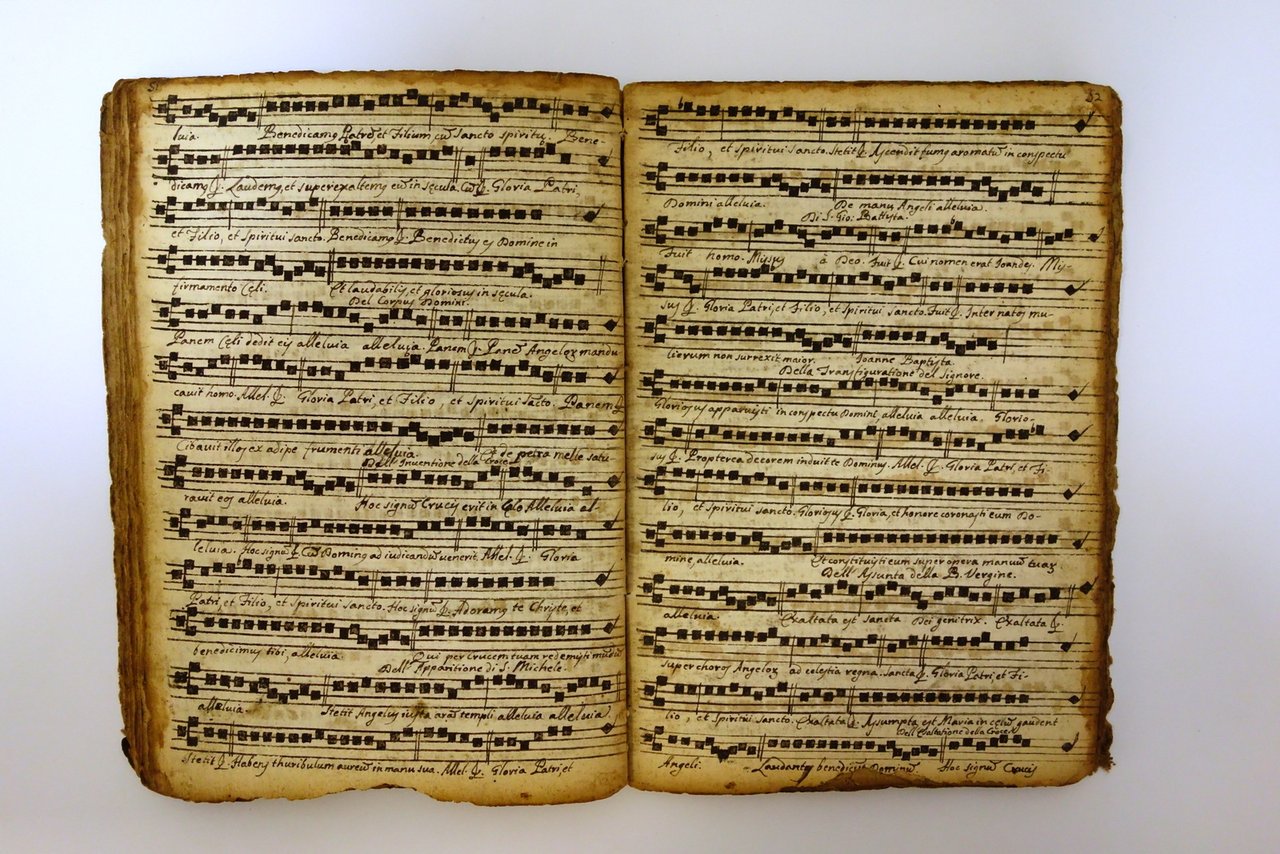 51
luia. Benedicamq Patrē, et Filium, cū Sancto spiritu. Bene-
dicamq ℣. Laudemq, et superexaltemq eū in sęcula. Cū ℣. Gloria Patri,
et Filio, et Spiritui Sancto. Benedicamq ℣. Benedictus es Domine in
firmamento Cęli. Et laudabilis, et gloriosus in sęcula.
Del Corpus Domini.
Panem Cęli dedit eis alleluia alleluia. Panem ℣. Panē Angeloꝝ mandu
cavit homo. Allel. ℣. Gloria Patri, et Filio, et Spiritui Sācto. Panem
Cibavit illos ex adipe frumenti alleluia. Et de petra melle satu
Dell' Inventione della Croce
ravit eos alleluia. Hoc signū Crucis erit in Cęlo Alleluia al-
leluia. Hoc signū ℣. Cū Dominq ad iudicandū venerit. Allel. ℣. Gloria
Patri, et Filio, et Spiritui Sancto. Hoc signū ℣. Adoramq te Christe, et
benedicimus tibi, alleluia. Qui per Crucem tuam redemisti mūdū
Dell' Apparitione di S. Michele.
alleluia. Stetit Angelus iuxta arā templi alleluia alleluia
Stetit ℣. Habens thuribulum aureū in manu sua. Allel. ℣. Gloria Patri, et
52
Filio, et Spiritui Sancto. Stetit ℣. Ascendit fumq aromatū in conspectu
Domini alleluia. De manu Angeli alleluia.
Di S. Gio: Battista.
Fuit homo. Missus à Deo. Fuit ℣. Cui nomen erat Joannes. Mis-
sus ℣. Gloria Patri, et Filio, et Spiritui Sancto. Fuit ℣. Inter natos mu-
lierum non surrexit maior. Joanne Baptista
Della Transfiguratione del Signore.
Gloriosus apparuisti in conspectu Domini alleluia alleluia. Glorio-
sus ℣. Propterea decorem induit te Dominus. Allel. ℣. Gloria Patri, et Fi-
lio, et Spiritui Sancto. Gloriosus ℣. Gloria, et honore coronasti eum Do-
mine, alleluia. Et constituisti eum super opera manuū tuaꝝ
Dell' Assunta della B. Vergine.
alleluia. Exaltata est Sancta Dei genitrix. Exaltata ℣.
super choros Angeloꝝ ad celestia regna. Sancta ℣. Gloria Patri, et Fi-
lio, et Spiritui Sancto. Exaltata ℣. Assumpta est Maria in celū gaudent
Dell' Exaltatione della Croce
Angeli. Laudantes benedicūt Dominū. Hoc signū Crucis